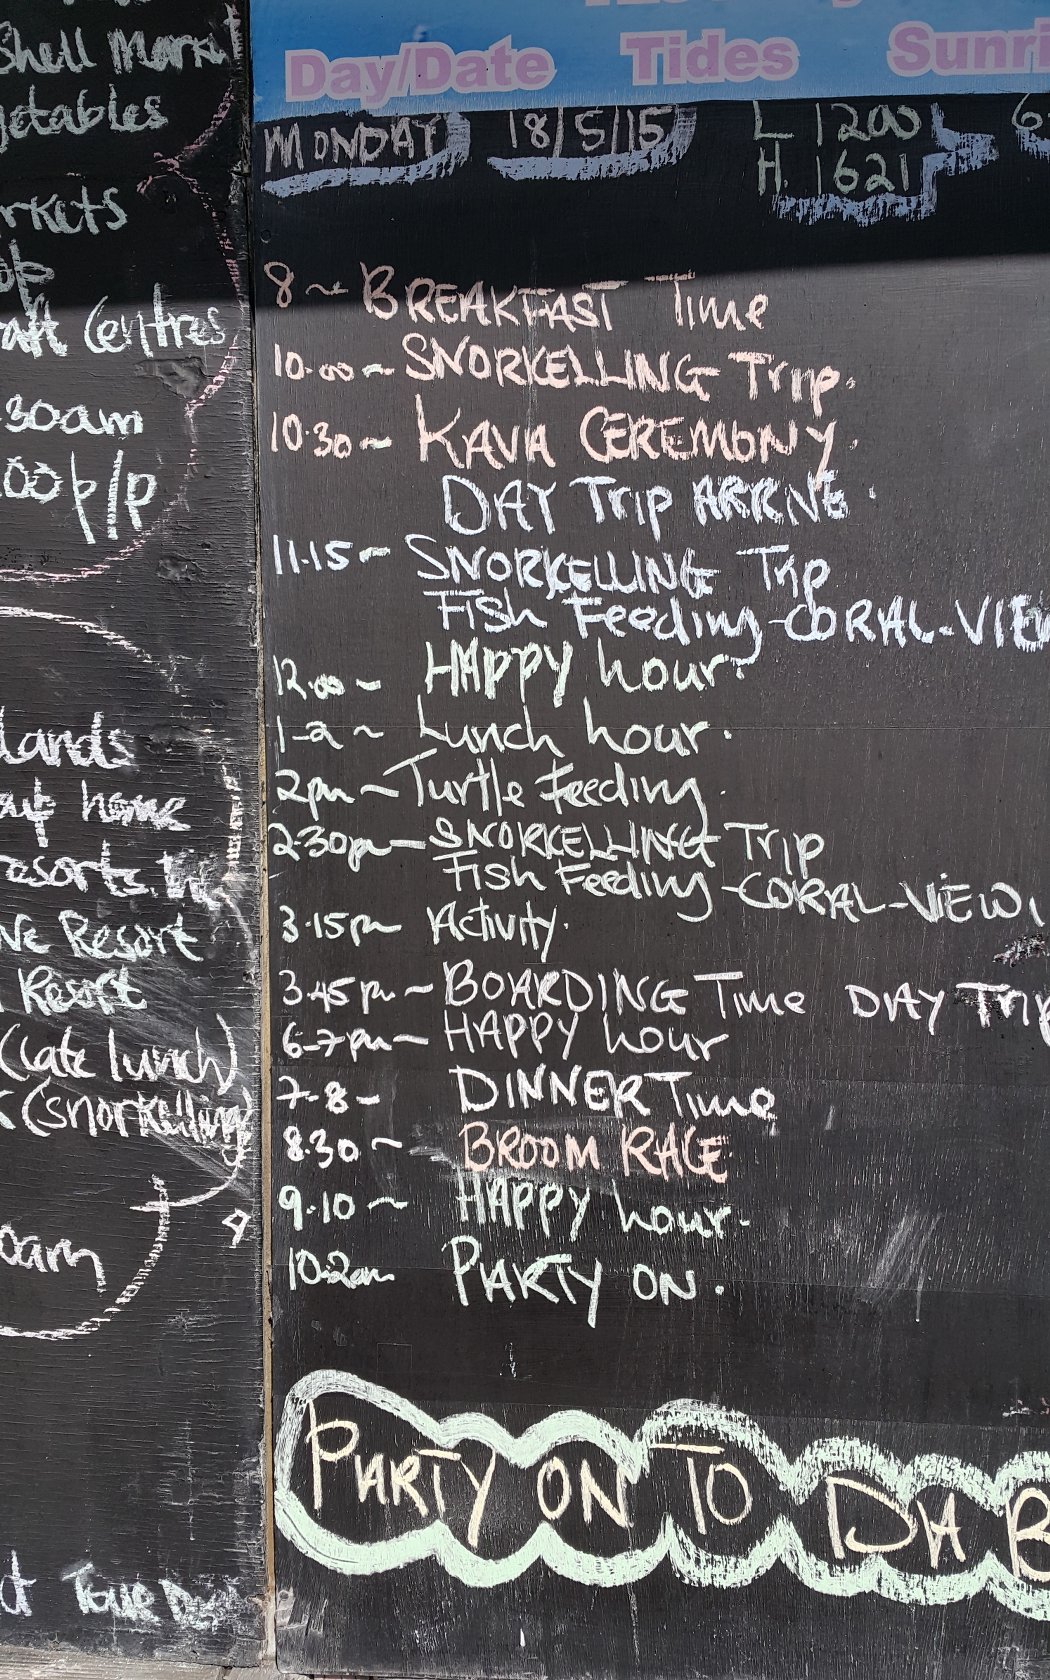 Shell
etables
rkets
Centres
30am
.00 p/p
lands
home
Resort
Resort
(late lunch)
(snorkelling)
oam
Day/Date Tides Sunri
MONDAY 18/5/15 L 1200
H. 1621
8 ~ BREAKFAST Time
10.00 ~ SNORKELLING Trip.
10.30 ~ KAVA CEREMONY.
DAY Trip ARRIVE.
11.15 ~ SNORKELLING Trip
Fish Feeding - CORAL-VIEW
12.00 ~ HAPPY hour.
1-2 ~ Lunch hour.
2pm ~ Turtle Feeding.
2.30pm ~ SNORKELLING Trip
Fish Feeding - CORAL-VIEW,
3.15pm Activity.
3.45pm ~ BOARDING Time DAY Trip
6-7pm ~ HAPPY hour
7-8 - DINNER Time
8.30 ~ BROOM RACE
9.10 ~ HAPPY hour.
10-2am PARTY ON.
PARTY ON TO DA B